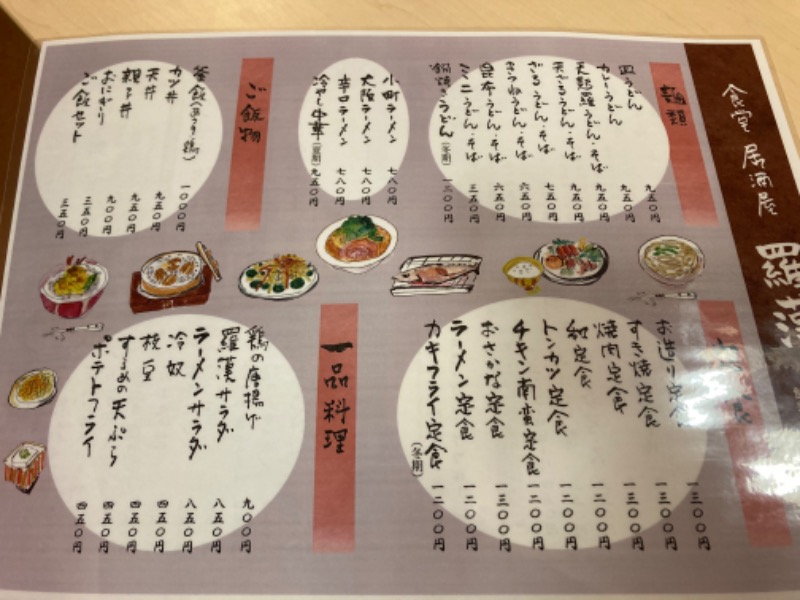 食堂 居酒屋
羅漢
麺類
皿うどん 九五〇円
カレーうどん 九五〇円
天麩羅うどん・そば 九五〇円
天ざるうどん・そば 九五〇円
ざるうどん・そば 七五〇円
きつねうどん・そば 六五〇円
昆布うどん・そば 六五〇円
ミニうどん・そば 三五〇円
鍋焼きうどん(冬期) 一二〇〇円
小町ラーメン 七八〇円
大阪ラーメン 七八〇円
辛口ラーメン 七八〇円
冷やし中華(夏期) 九五〇円
ご飯物
釜飯 一〇〇〇円
カツ丼 九五〇円
天丼 九五〇円
親子丼 九〇〇円
おにぎり 三五〇円
ご飯セット 三五〇円
お造り定食 一三〇〇円
すき焼定食 一三〇〇円
焼肉定食 一三〇〇円
定食 一二〇〇円
トンカツ定食 一二〇〇円
チキン南蛮定食 一二〇〇円
おさかな定食 一三〇〇円
ラーメン定食 一二〇〇円
カキフライ定食(冬期) 一二〇〇円
一品料理
鶏の唐揚げ 九〇〇円
羅漢サラダ 八五〇円
ラーメンサラダ 八五〇円
冷奴 四五〇円
枝豆 四五〇円
するめの天ぷら 四五〇円
ポテトフライ 四五〇円